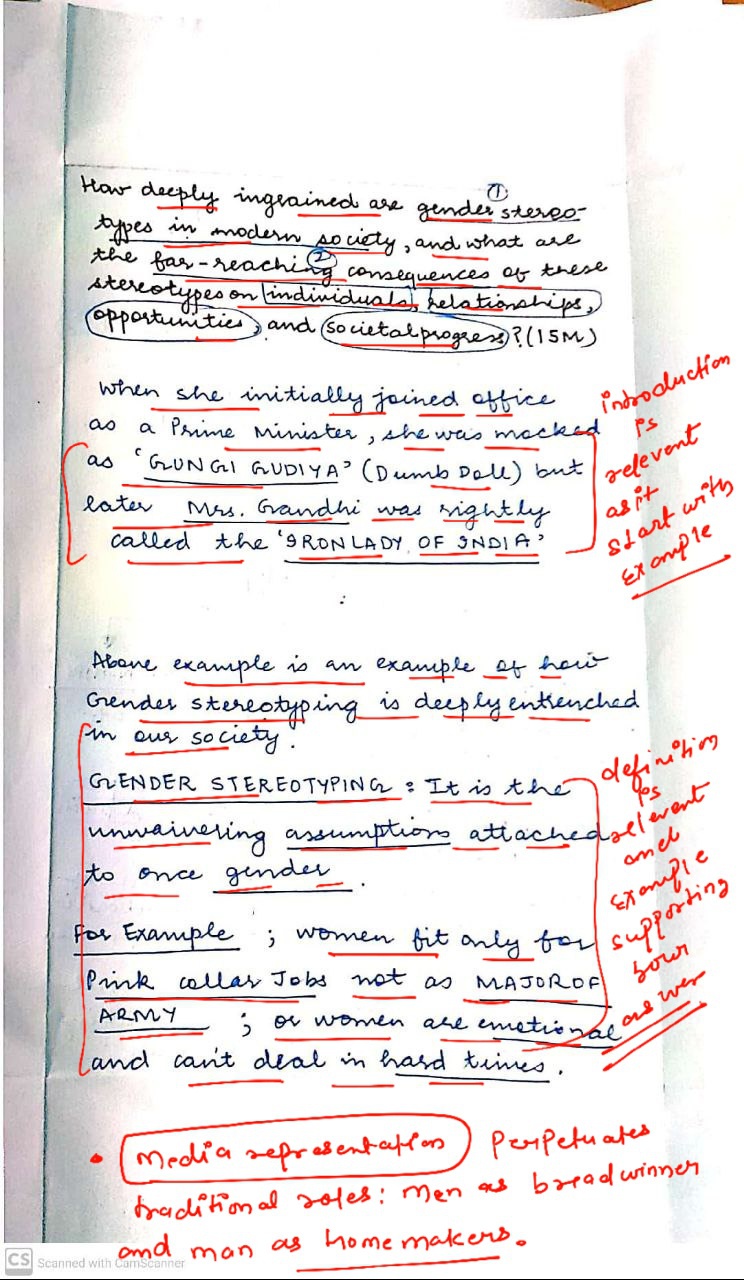 How deeply ingrained are gender ① stereo-
types in modern society, and what are
the far-reaching ② consequences of these
stereotypes on individuals, relationships,
opportunities, and societal progress? (15M)
When she initially joined office
as a Prime Minister, she was mocked
as 'GUNGI GUDIYA' (Dumb Doll) but
later Mrs. Gandhi was rightly
called the 'IRON LADY OF INDIA'
introduction
is
relevant
as it
start with
Example
Above example is an example of how
Gender stereotyping is deeply entrenched
in our society.
GENDER STEREOTYPING : It is the
unwaivering assumptions attached
to once gender.
For Example ; women fit only for
Pink collar Jobs not as MAJOR OF
ARMY ; or women are emotional
and can't deal in hard times.
definition
is
relevant
and
Example
supporting
your
answer
• Media representation Perpetuates
traditional roles: men as breadwinner
and man as homemakers.
CS Scanned with CamScanner